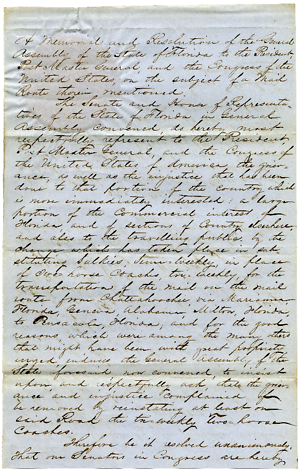 A Memorial and Resolution of the General
Assembly of the State of Florida to the President
Post Master General and the Congress of the
United States, on the subject of a Mail
Route therein mentioned.
The Senate and House of Representa
tives of the State of Florida in General
Assembly convened, do hereby most
respectfully represent to the President
Post Master General, and the Congress of
the United States of America, the griev
ance as well as the injustice that has been
done to that portion of the country which
is more immediately interested; a large
portion of the Commercial interest of
Florida and of sections of Country elsewhere
and also to the travelling public, by the
which has taken place in sub
stituting hacks, semi-weekly, in place
of two horse Coaches, tri-weekly, for the
transportation of the mail on the mail
route from Chattahoochee, via Marianna
Florida, Geneva, Alabama, Milton, Florida
to Pensacola, Florida; and for the good
reasons which were among the many others
that might have been with great propriety
urged induces the General Assembly of the
State aforesaid now convened to insist
upon, and respectfully ask that the griev
ance and injustice complained of
be removed by reinstating at least on
said Road the tri-weekly Two horse
Coaches.
Therefore be it resolved unanimously,
that our Senators in Congress are hereby